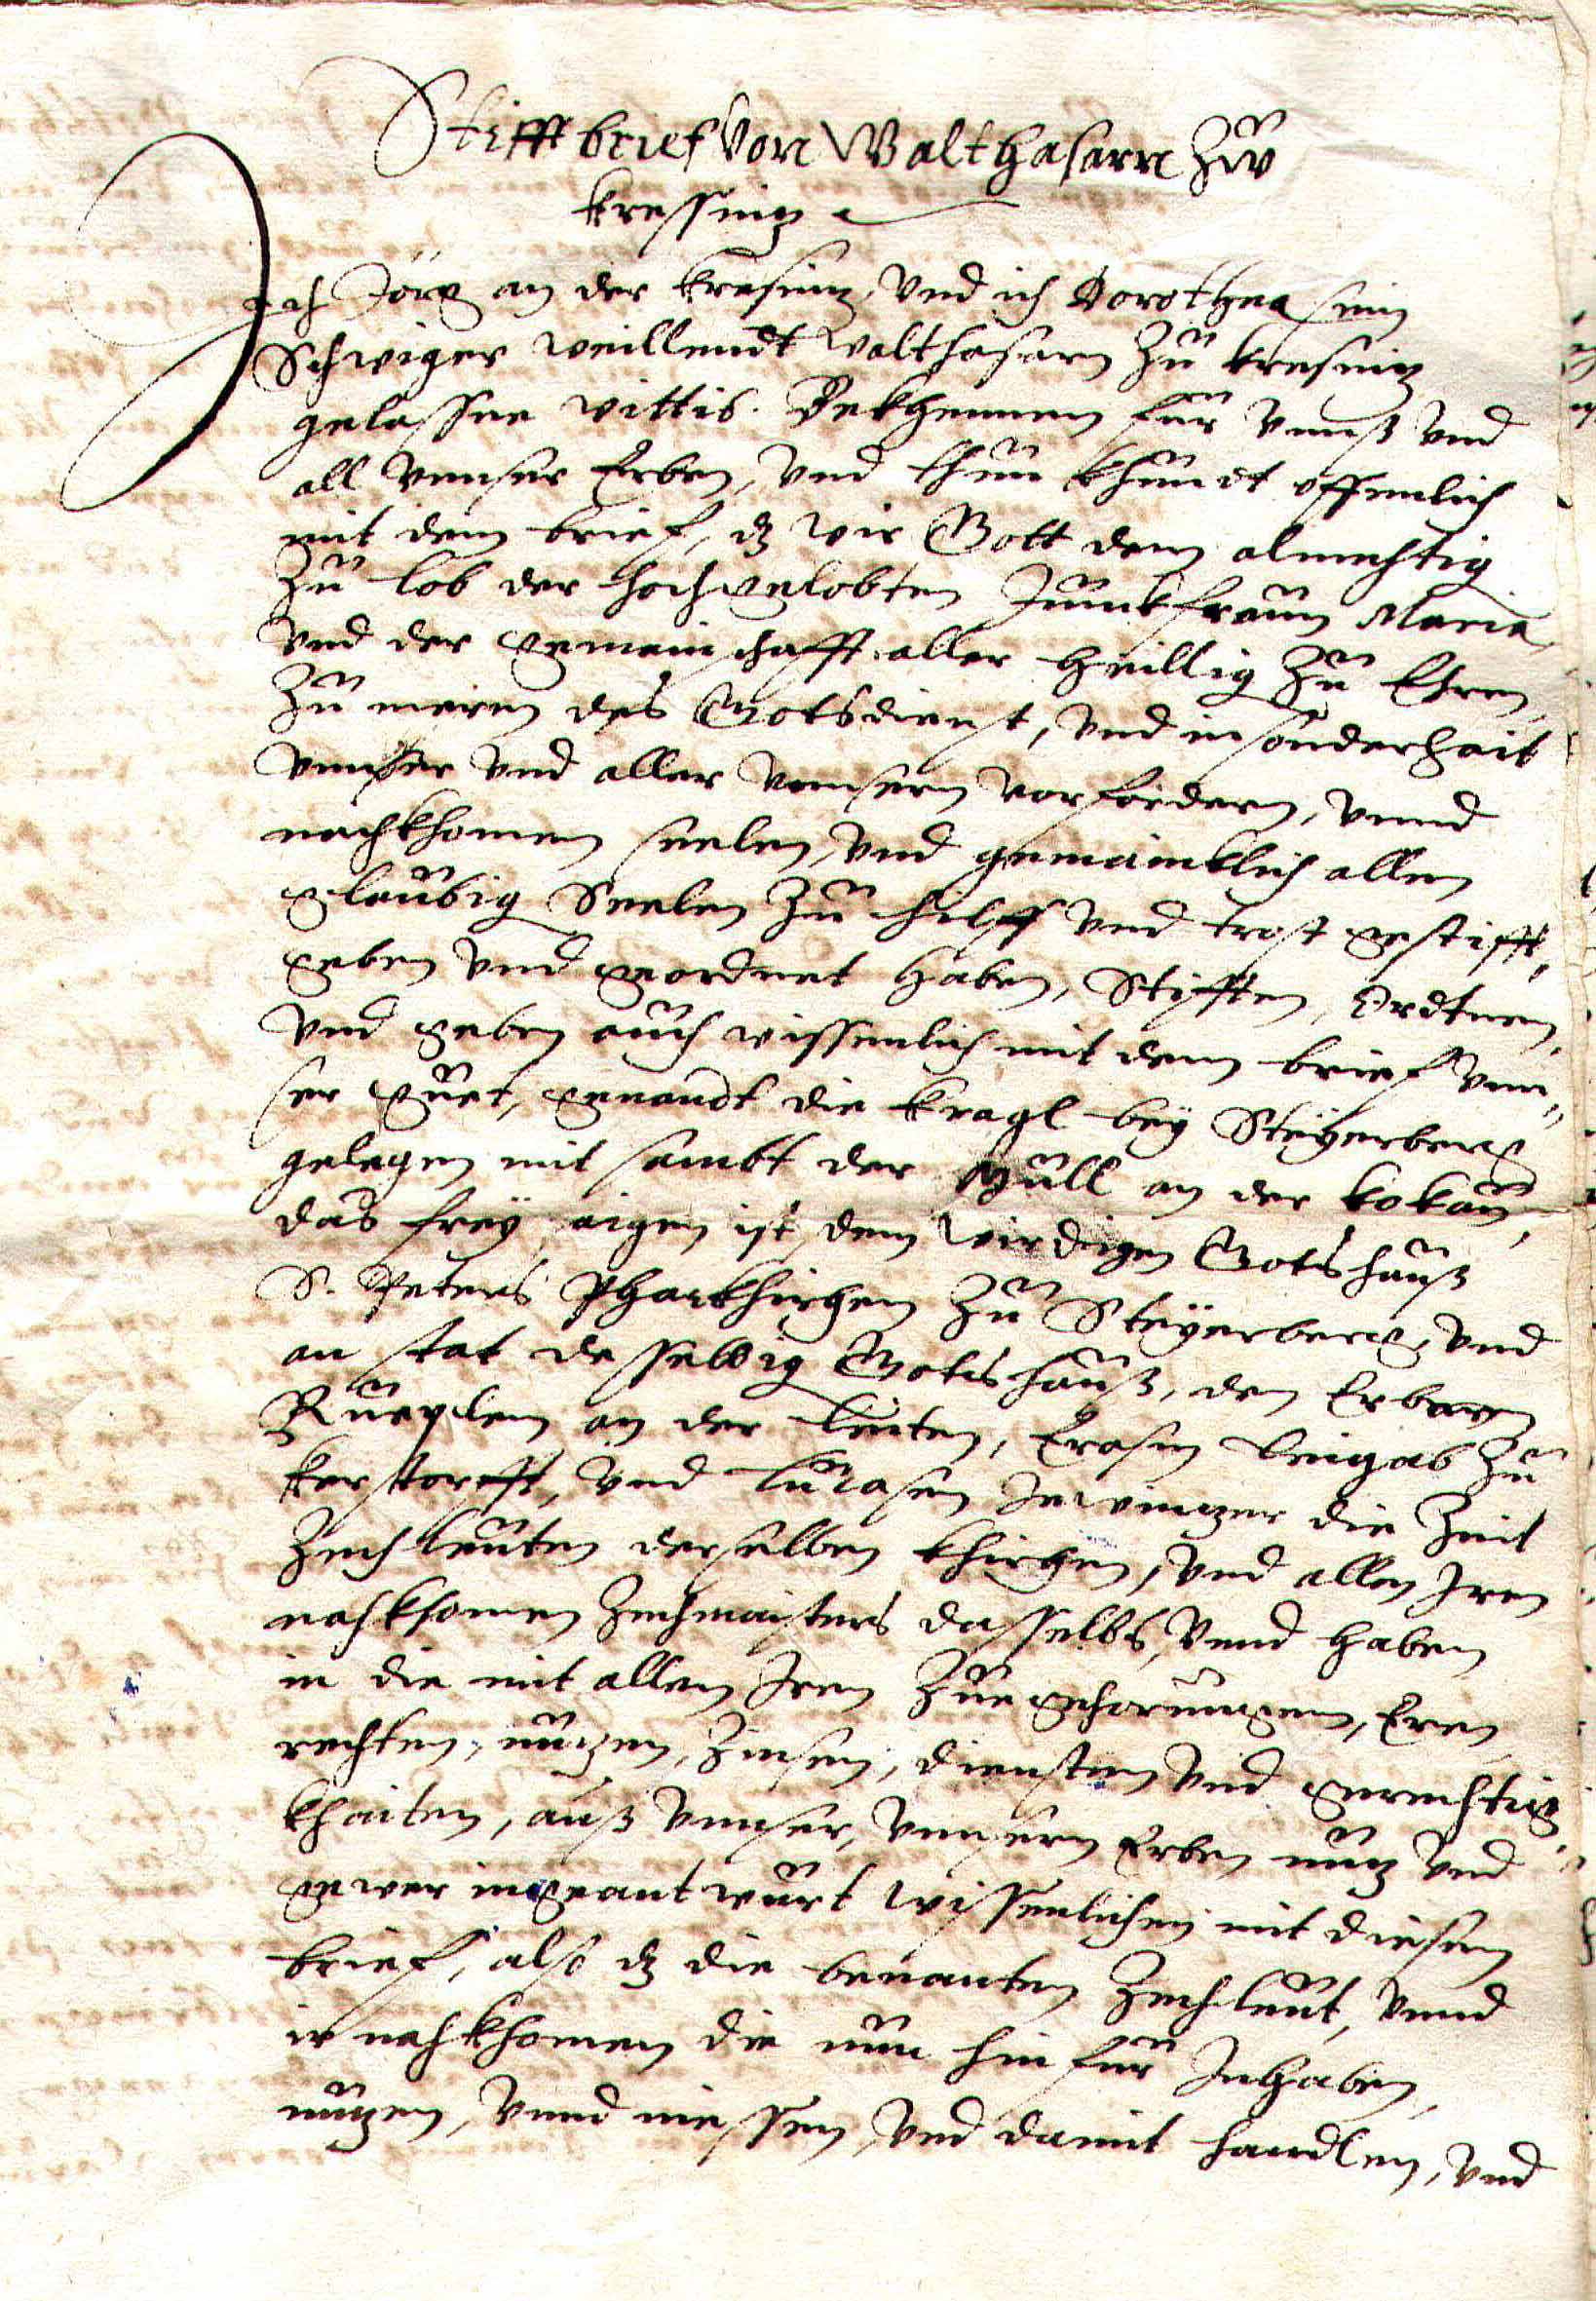 Stifftbrief von Walthasarn zw
kressnitz
Ich Jörg an der kresnitz, vnd ich Dorothea sein
Schwiger weillendt walthasarn zů kresnitz
gelassne wittib. Bekhennen für vnnß vnd
all vnnser Erben, vnd thun khundt offenlich
mit dem brief, dz wir Gott dem almechtig
zů lob der hochgelobten Junkfraun Maria
vnd der gemainschafft aller heillig zů Ehren,
zů meren des Gotsdienst, vnd in sonderhait
vnnser vnd aller vnnsern vorfordern, vnnd
nachkhomen seelen, vnd gemaincklich allen
glaubig Seelen zů hilff vnd trost gestifft,
geben vnd geordnet haben, Stifften, Ordtnen,
vnd geben auch wissenlich mit dem brief vnn„
ser guet, genandt die kragl bey Steyerberg
gelegen mit sambt der Mull an der kokau,
das frey aigen ist, dem wirdigen Gotshauß
S. Peters Pharkhirchen zů Steyerberg, vnd
an stat desselbig Gotshauß, den Erbern
Rueplen an der leiten, Erasm zů
kerstorfft, vnd lucasen die Zeit
Zechleuten derselben khirchen, vnd allen Iren
nachkhomen Zechmaisters dasselbs, vnnd haben
in die mit allen Iren Zuegehorungen, Eren,
rechten, nutzen, Zinsen, diensten vnd gerechtig„
khaiten, auß vnnser, vnnsern Erben nutz vnd
gewer ingeantwurt wissenlichen mit diesem
brief, also dz die benanten Zechleut, vnnd
ir nachkhomen die nun hin für Inhaben,
nutzen, vnnd niessen, vnd damit handlen, vnd